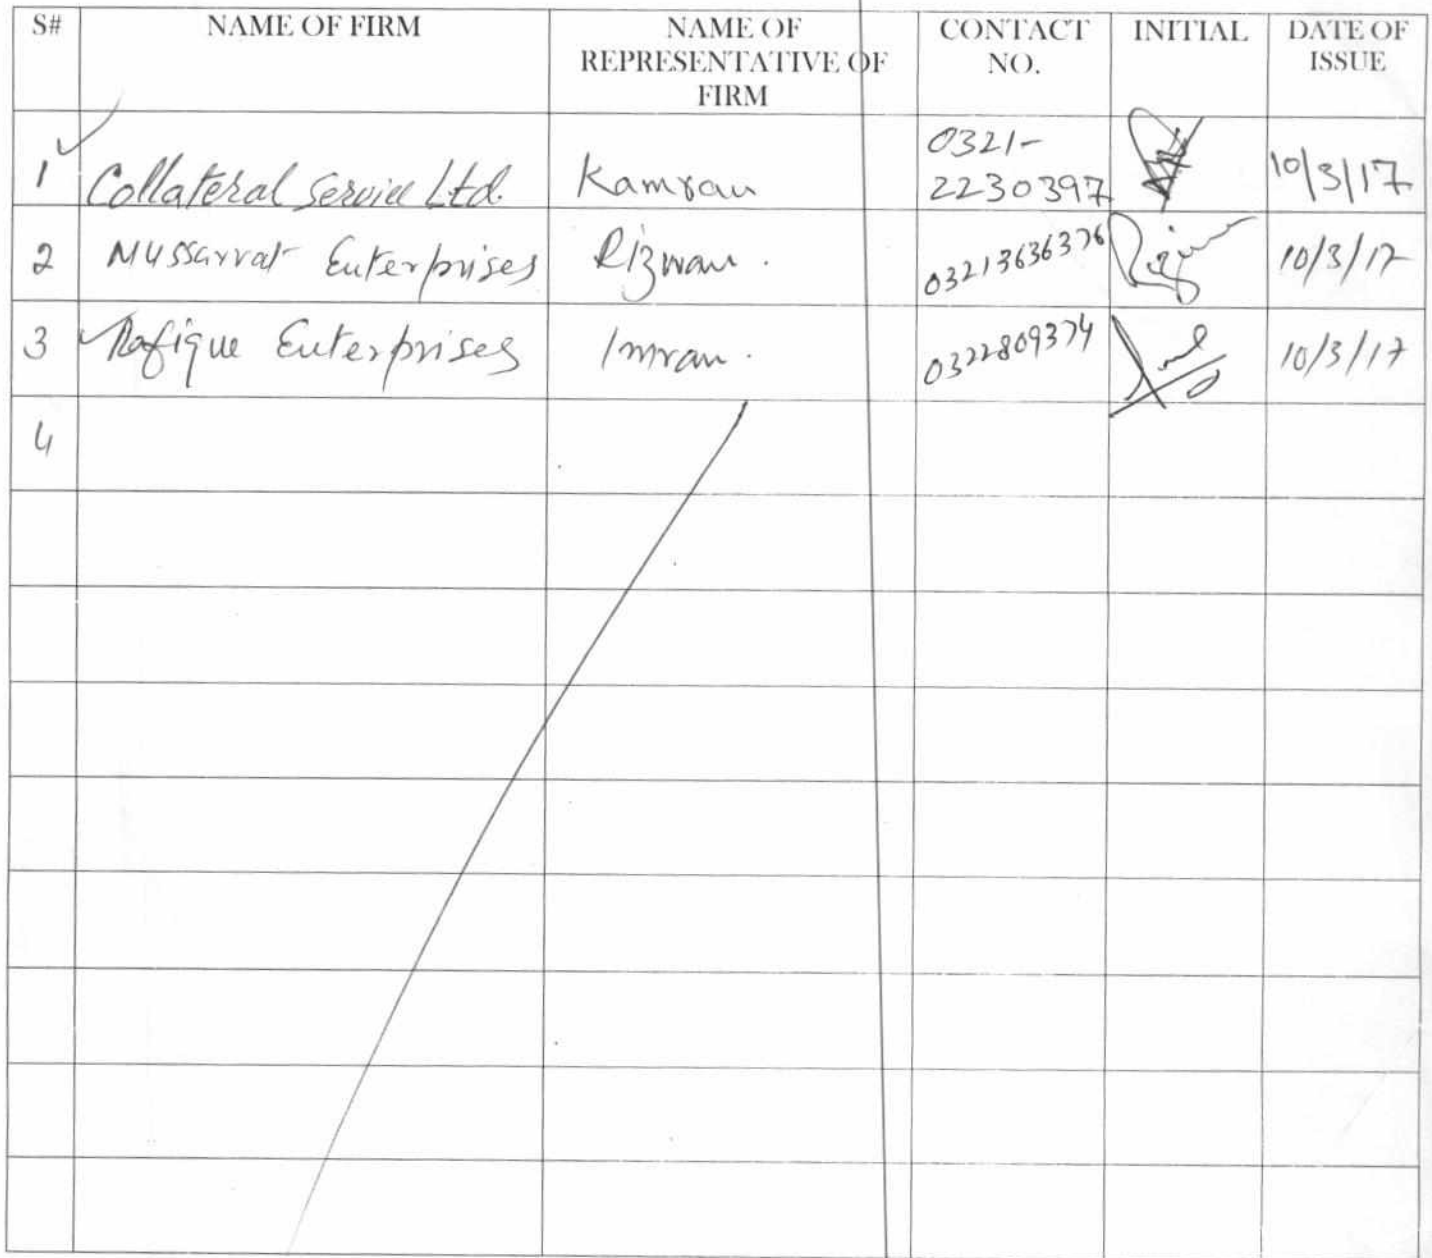 S# NAME OF FIRM NAME OF REPRESENTATIVE OF FIRM CONTACT NO. INITIAL DATE OF ISSUE
1 Collateral Service Ltd. Kamran 0321-2230397 10/3/17
2 Mussarrat Enterprises Rizwan. 03213636376 10/3/17
3 Rafique Enterprises Imran. 0322809374 10/3/17
4